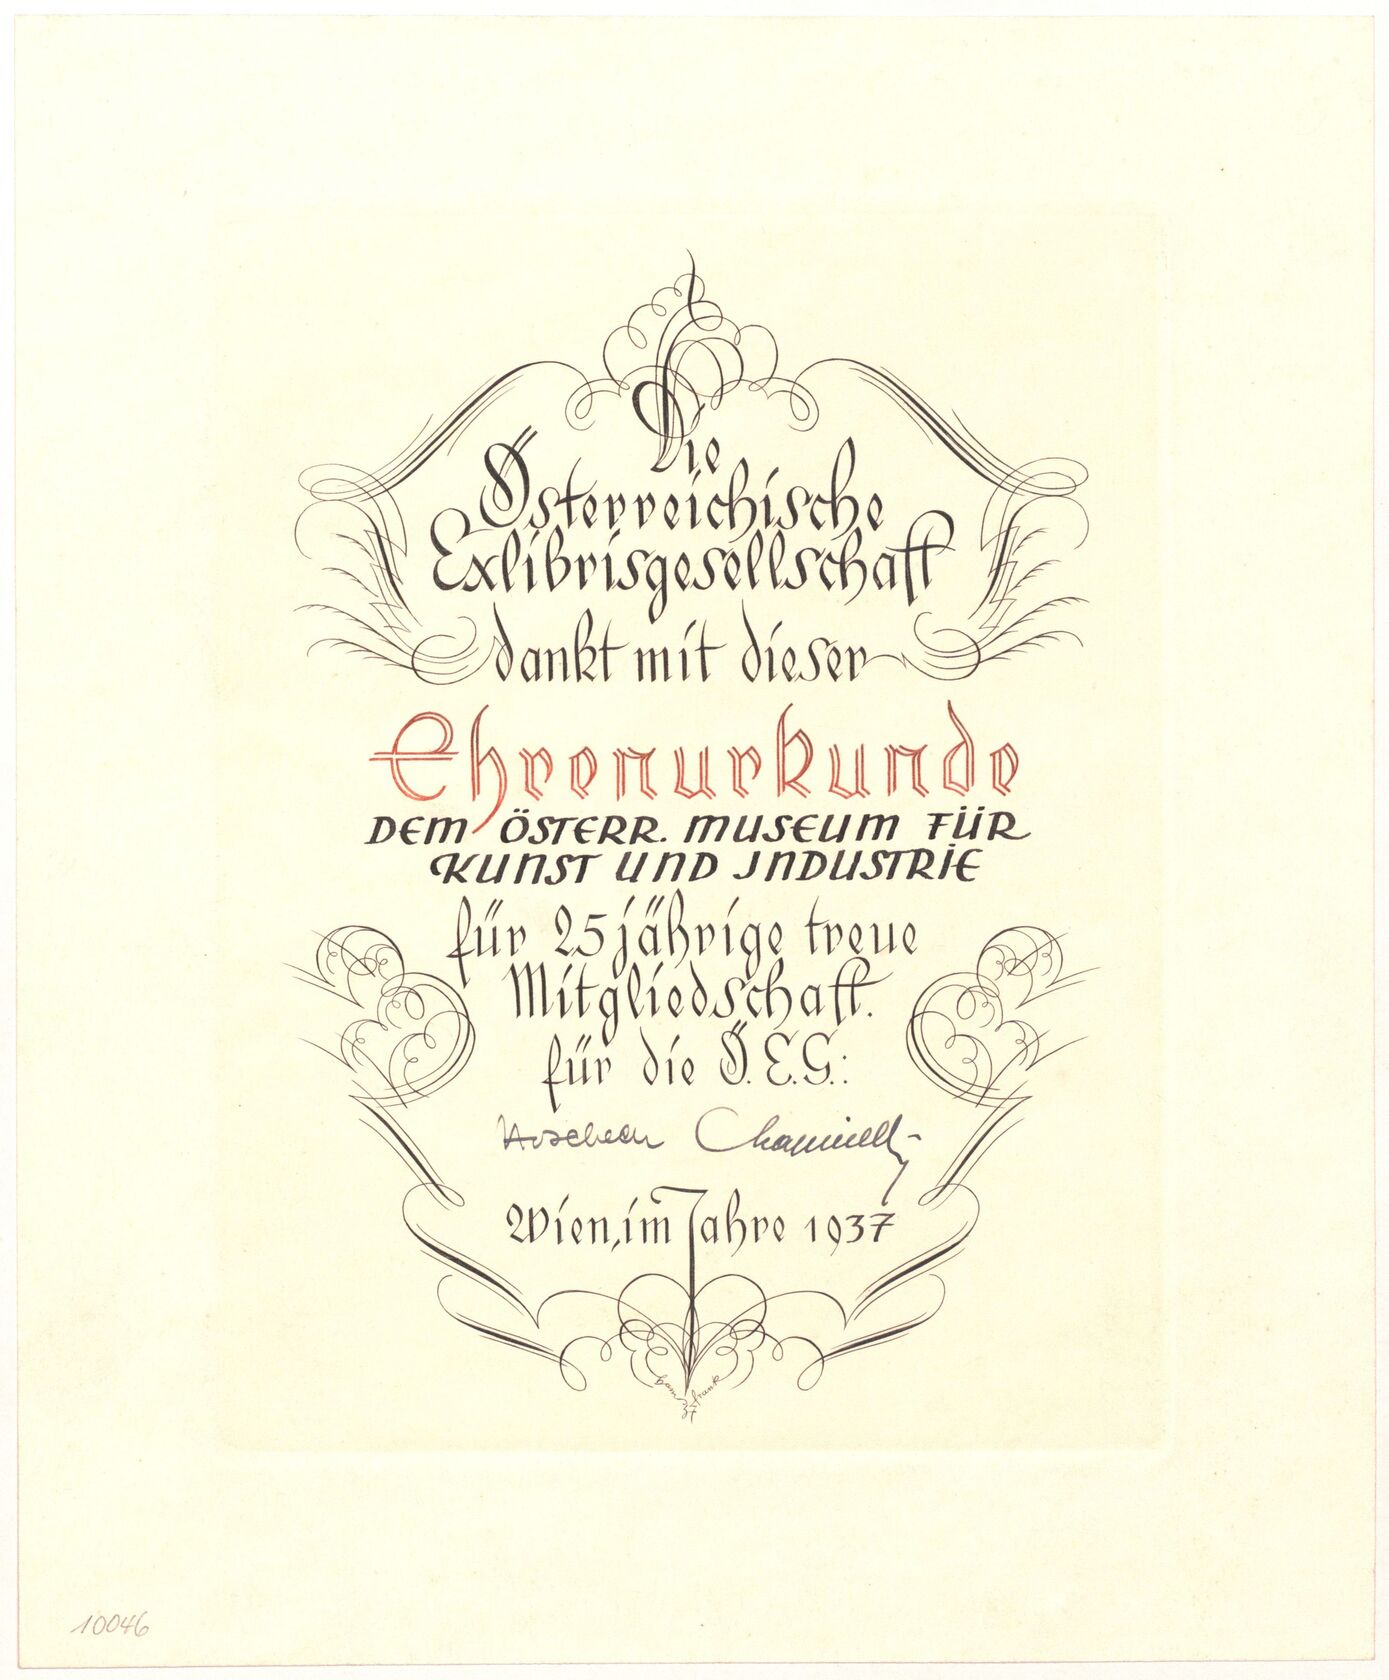 Die
Österreichische
Exlibrisgesellschaft
dankt mit dieser
Ehrenurkunde
DEM ÖSTERR. MUSEUM FÜR
KUNST UND INDUSTRIE
für 25jährige treue
Mitgliedschaft.
für die Ö.E.G.:
Wien, im Jahre 1937
hans frank
37
10046